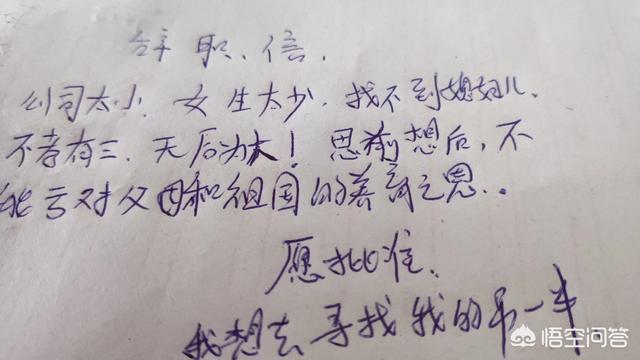 辞职信.
公司太小.女生太少.找不到媳妇儿.
不孝有三.无后为大!思前想后,不
能亏对父母和祖国的养育之恩..
愿批准.
我想去寻找我的另一半.
悟空问答